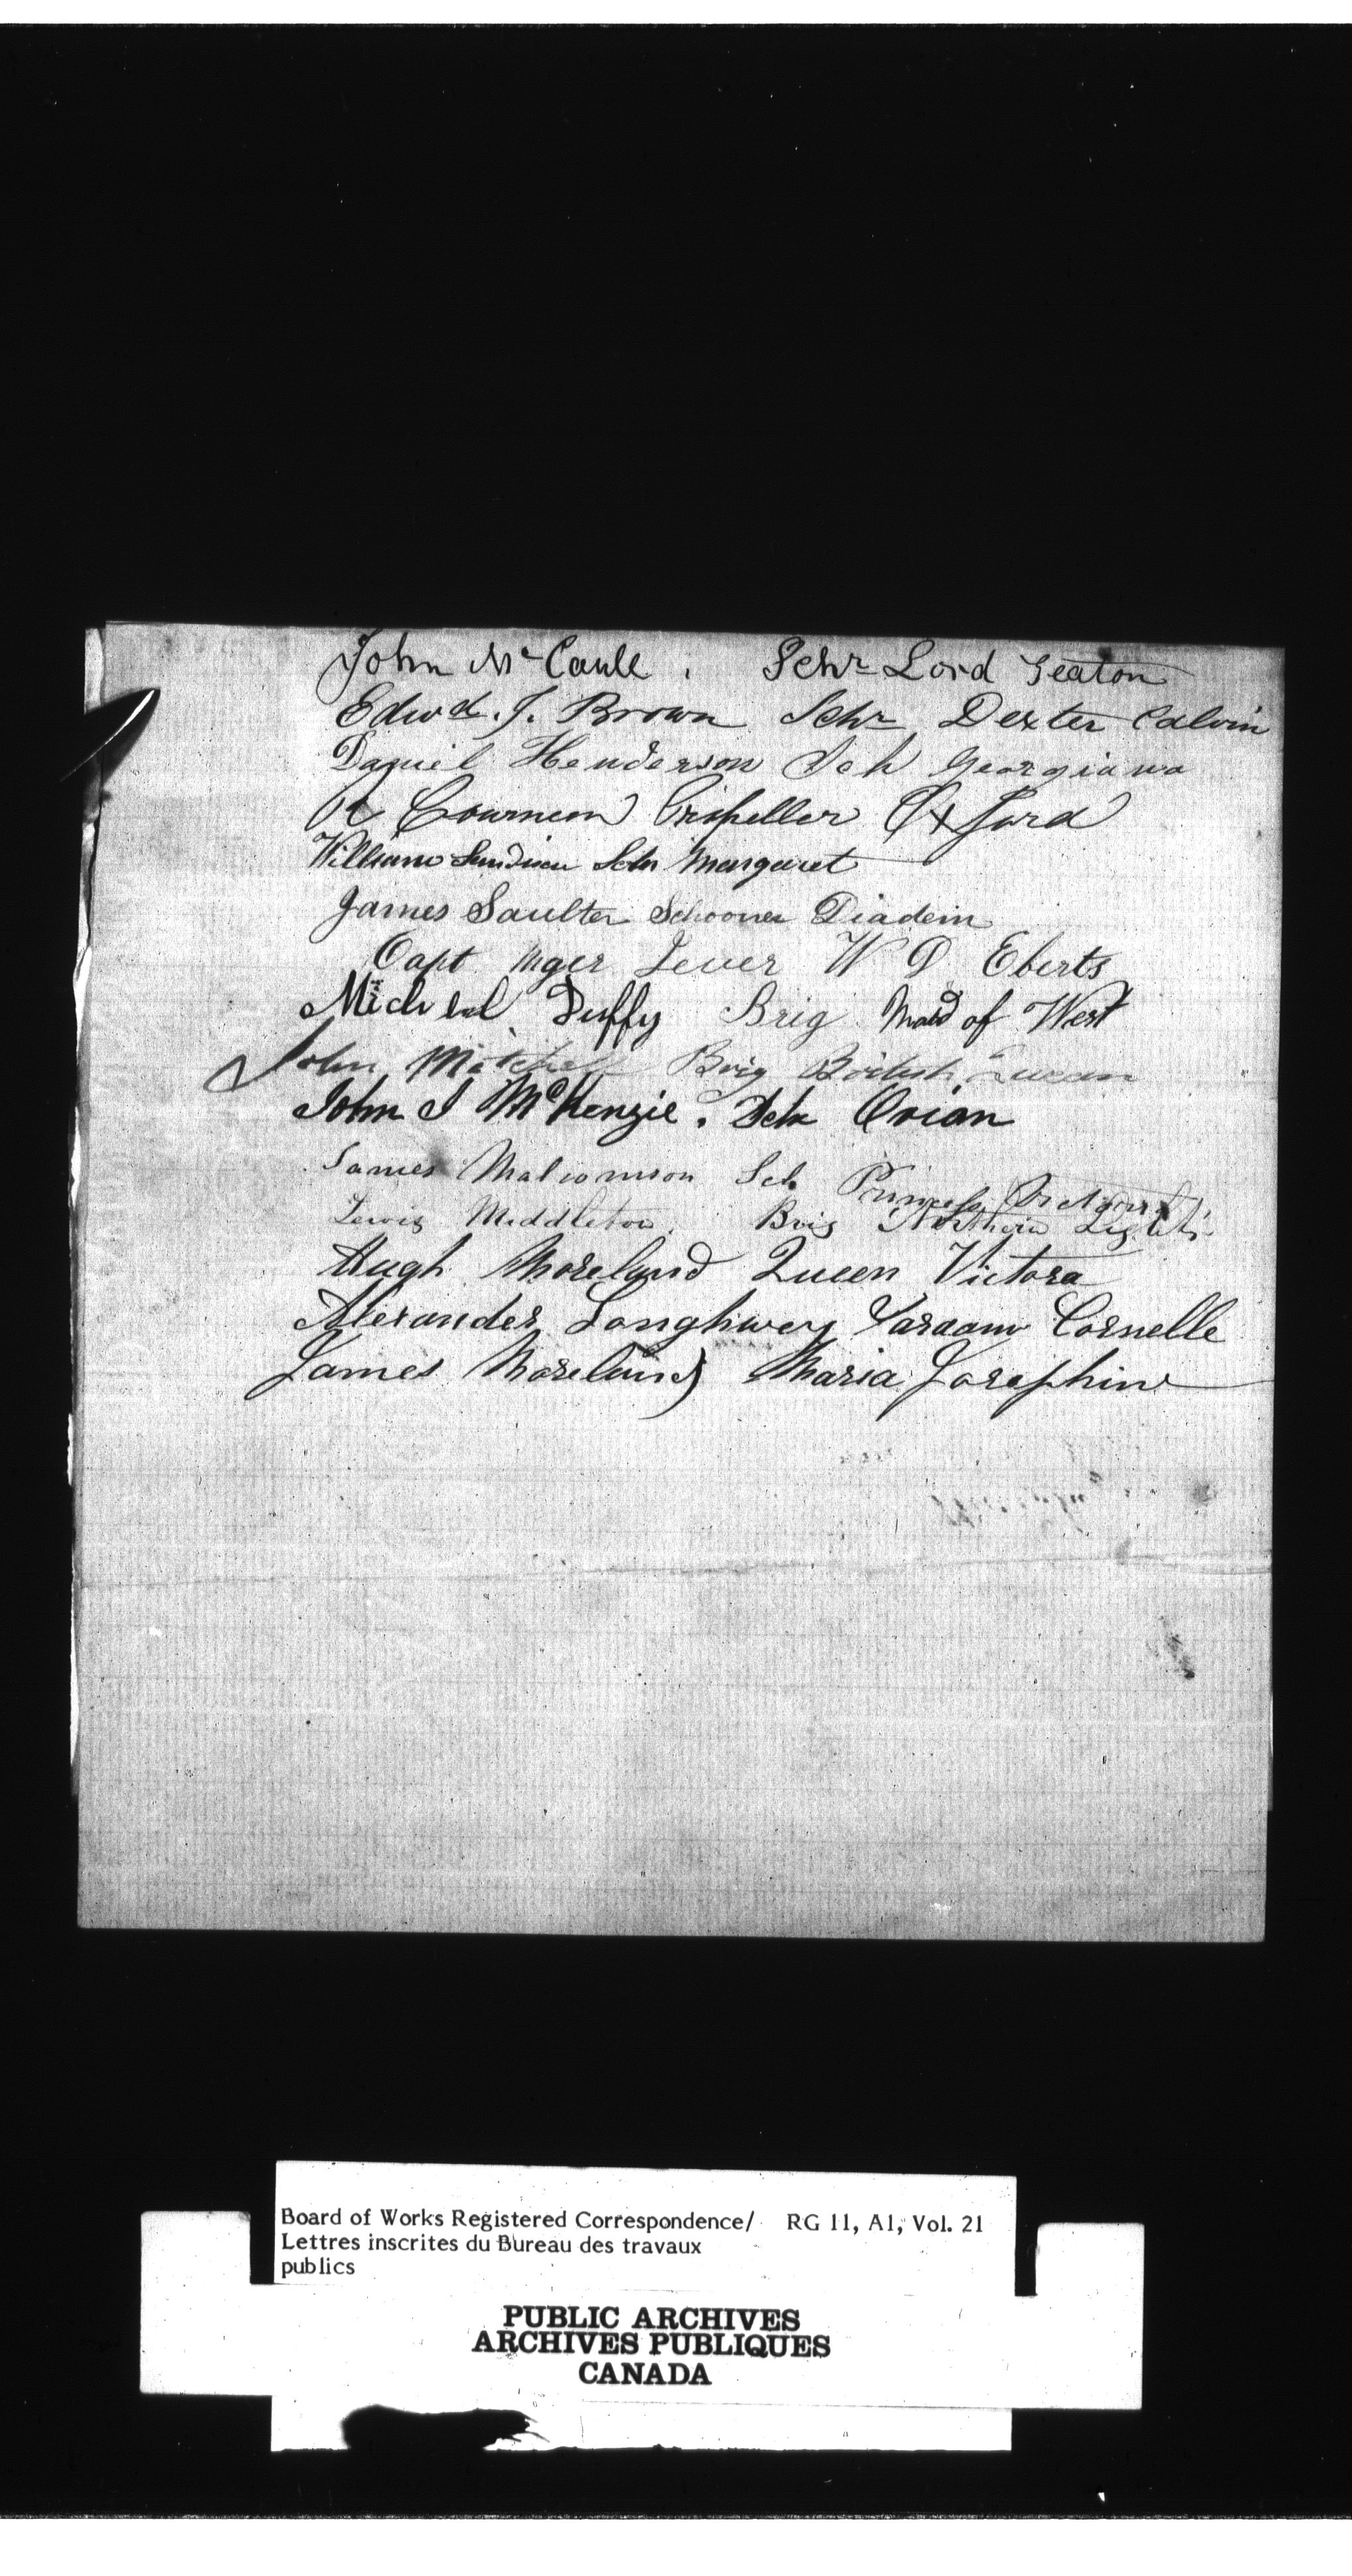 John McCaull. Schr Lord Seaton
Edwd. J. Brown Schr Dexter Calvin
Daniel Henderson Sch Georgiana
Propeller Oxford
William Schr Margaret
James Saulter Schooner Diadem
Capt W D Eberts
Micheal Duffy Brig Maid of West
John Mitchell Brig British Queen
John J McKenzie. Sch Orian
James Maliomson Sch Princess Victoria
Lewis Middleton. Brig Northern Light
Hugh Moreland Queen Victora
Alexander Longhwey Cornelle
James Moreland Maria Josephine
Board of Works Registered Correspondence/ RG 11, A1, Vol. 21
Lettres inscrites du Bureau des travaux
publics
PUBLIC ARCHIVES
ARCHIVES PUBLIQUES
CANADA